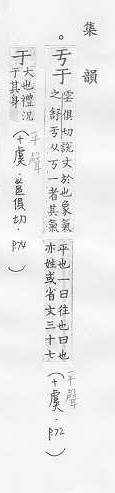 集韻
。亐于
雲俱切說文於也象气
之舒亐从丂一者其气
平也一曰往也曰也
亦姓或省文三十七
平聲
(十虞.P72)
于
大也禮
于其身
平聲
(十虞.邕俱切.P74)